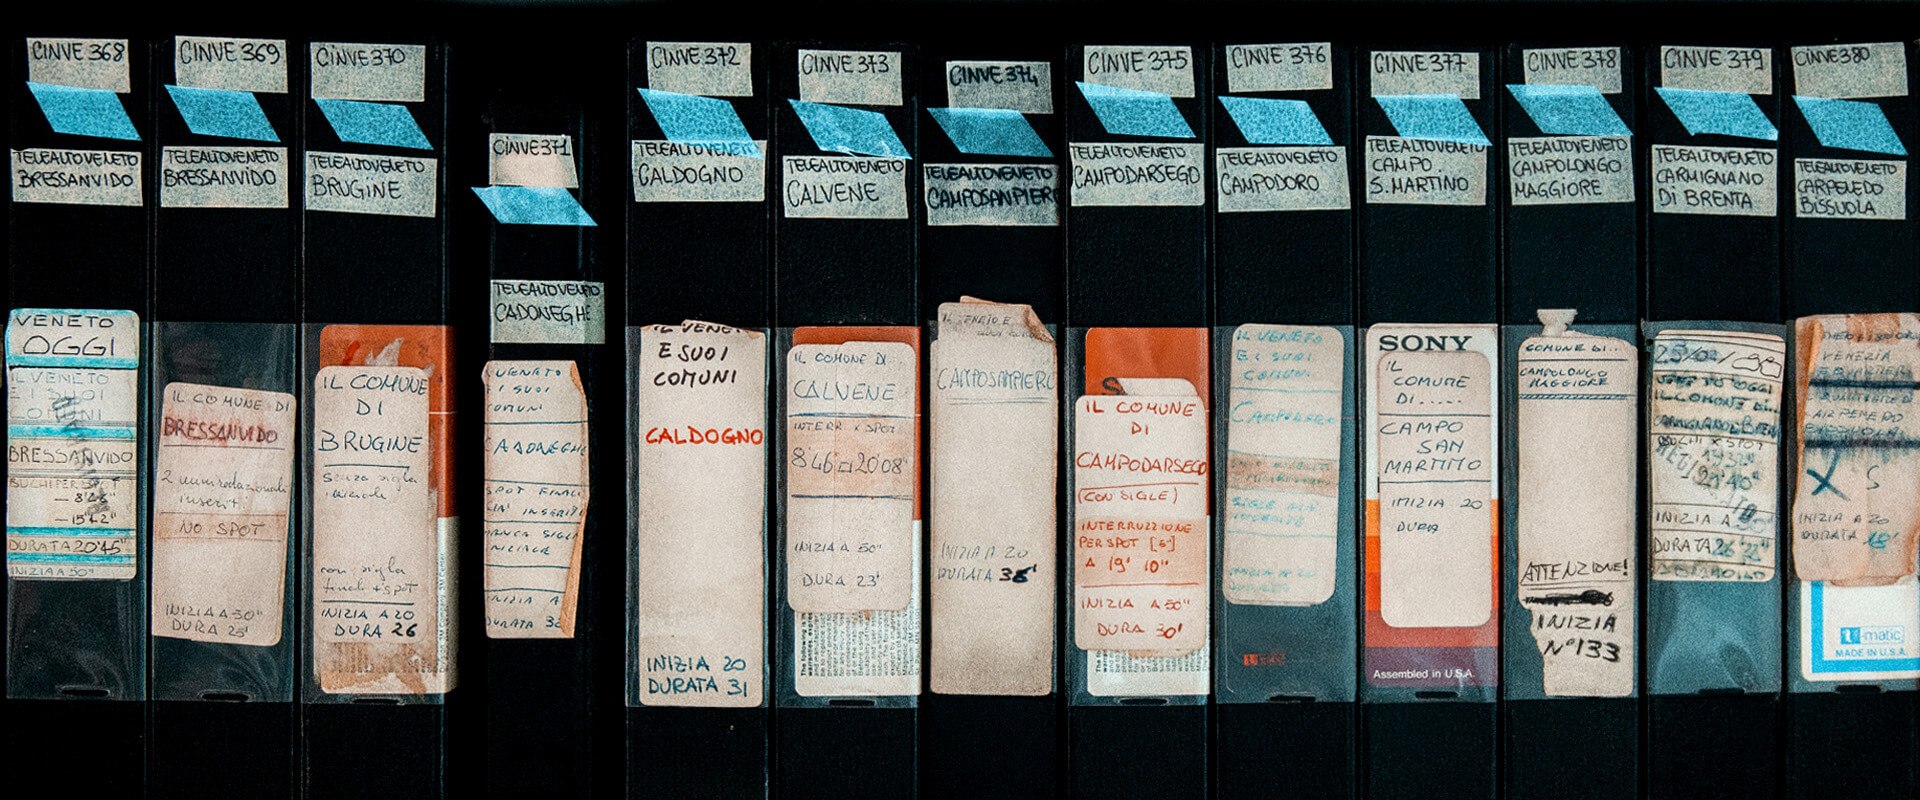 CINVE 368
TELEALTOVENETO
BRESSANVIDO
VENETO
OGGI
IL VENETO
E I SUOI
COMUNI
BRESSANVIDO
BUCHI PER SPOT
— 8'46"
— 15'42"
DURATA 20'45"
INIZIA A 50"
CINVE 369
TELEALTOVENETO
BRESSANVIDO
IL COMUNE DI
BRESSANVIDO
2
NO SPOT
INIZIA A 50"
DURA 25'
CINVE 370
TELEALTOVENETO
BRUGINE
IL COMUNE
DI
BRUGINE
senza sigla
iniziale
con sigla
finale + spot
INIZIA A 20
DURA 26
CINVE 371
TELEALTOVENETO
CADONEGHE
VENETO
I SUOI
COMUNI
CADONEGHE
SPOT FINALI
GIA' INSERITI
MANCA SIGLA
INIZIALE
INIZIA A
DURATA 30
CINVE 372
TELEALTOVENETO
CALDOGNO
IL VENET
E SUOI
COMUNI
CALDOGNO
INIZIA 20
DURATA 31
CINVE 373
TELEALTOVENETO
CALVENE
IL COMUNE DI..
CALVENE
INTERR X SPOT
8'46" 20'08"
INIZIA A 50"
DURA 23'
CINVE 374
TELEALTOVENETO
CAMPOSANPIERO
IL VENETO E
CAMPOSAMPIERO
INIZIA A 20
DURATA 36'
CINVE 375
TELEALTOVENETO
CAMPODARSEGO
S
IL COMUNE
DI
CAMPODARSEGO
(CON SIGLE)
INTERRUZIONE
PER SPOT [5"]
A 19' 10"
INIZIA A 50"
DURA 30'
CINVE 376
TELEALTOVENETO
CAMPODORO
IL VENETO
E I SUOI
COMUNI
CAMPODORO
u-matic
CINVE 377
TELEALTOVENETO
CAMPO
S. MARTINO
SONY
IL
COMUNE
DI.....
CAMPO
SAN
MARTINO
INIZIA 20
DURA
Assembled in U.S.A.
CINVE 378
TELEALTOVENETO
CAMPOLONGO
MAGGIORE
COMUNE DI...
CAMPOLONGO
MAGGIORE
ATTENZIONE!
INIZIA
N°133
CINVE 379
TELEALTOVENETO
CARMIGNANO
DI BRENTA
VENETO OGGI
IL COMUNE DI...
CARMIGNANO D BREN
BUCHI X SPOT
14'32"
REGISTRATO
20'40"
INIZIA A 50"
DURATA 26'22"
CINVE 380
TELEALTOVENETO
CARPENEDO
BISSUOLA
VENEZIA
X S
INIZIA A 20
DURATA 18'
u-matic
MADE IN U.S.A.